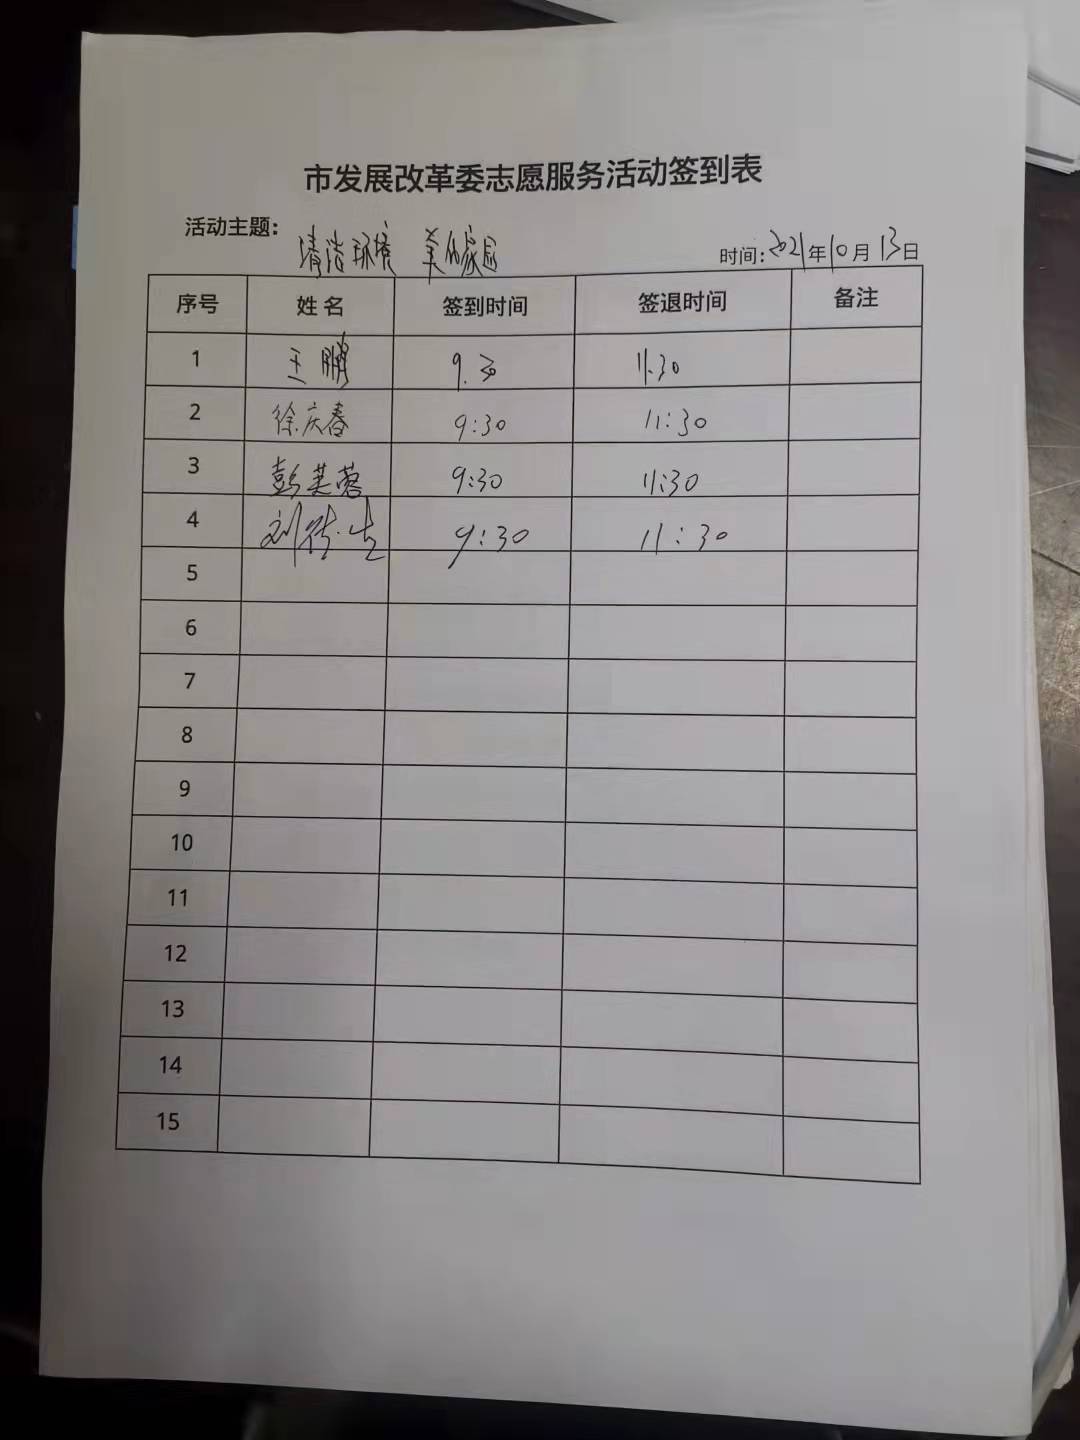 市发展改革委志愿服务活动签到表
活动主题: 清洁环境 美化家园
时间:2021年10月13日
序号 姓名 签到时间 签退时间 备注
1 王鹏 9.30 11.30
2 徐庆春 9:30 11:30
3 彭芙蓉 9:30 11:30
4 刘 9:30 11:30
5
6
7
8
9
10
11
12
13
14
15